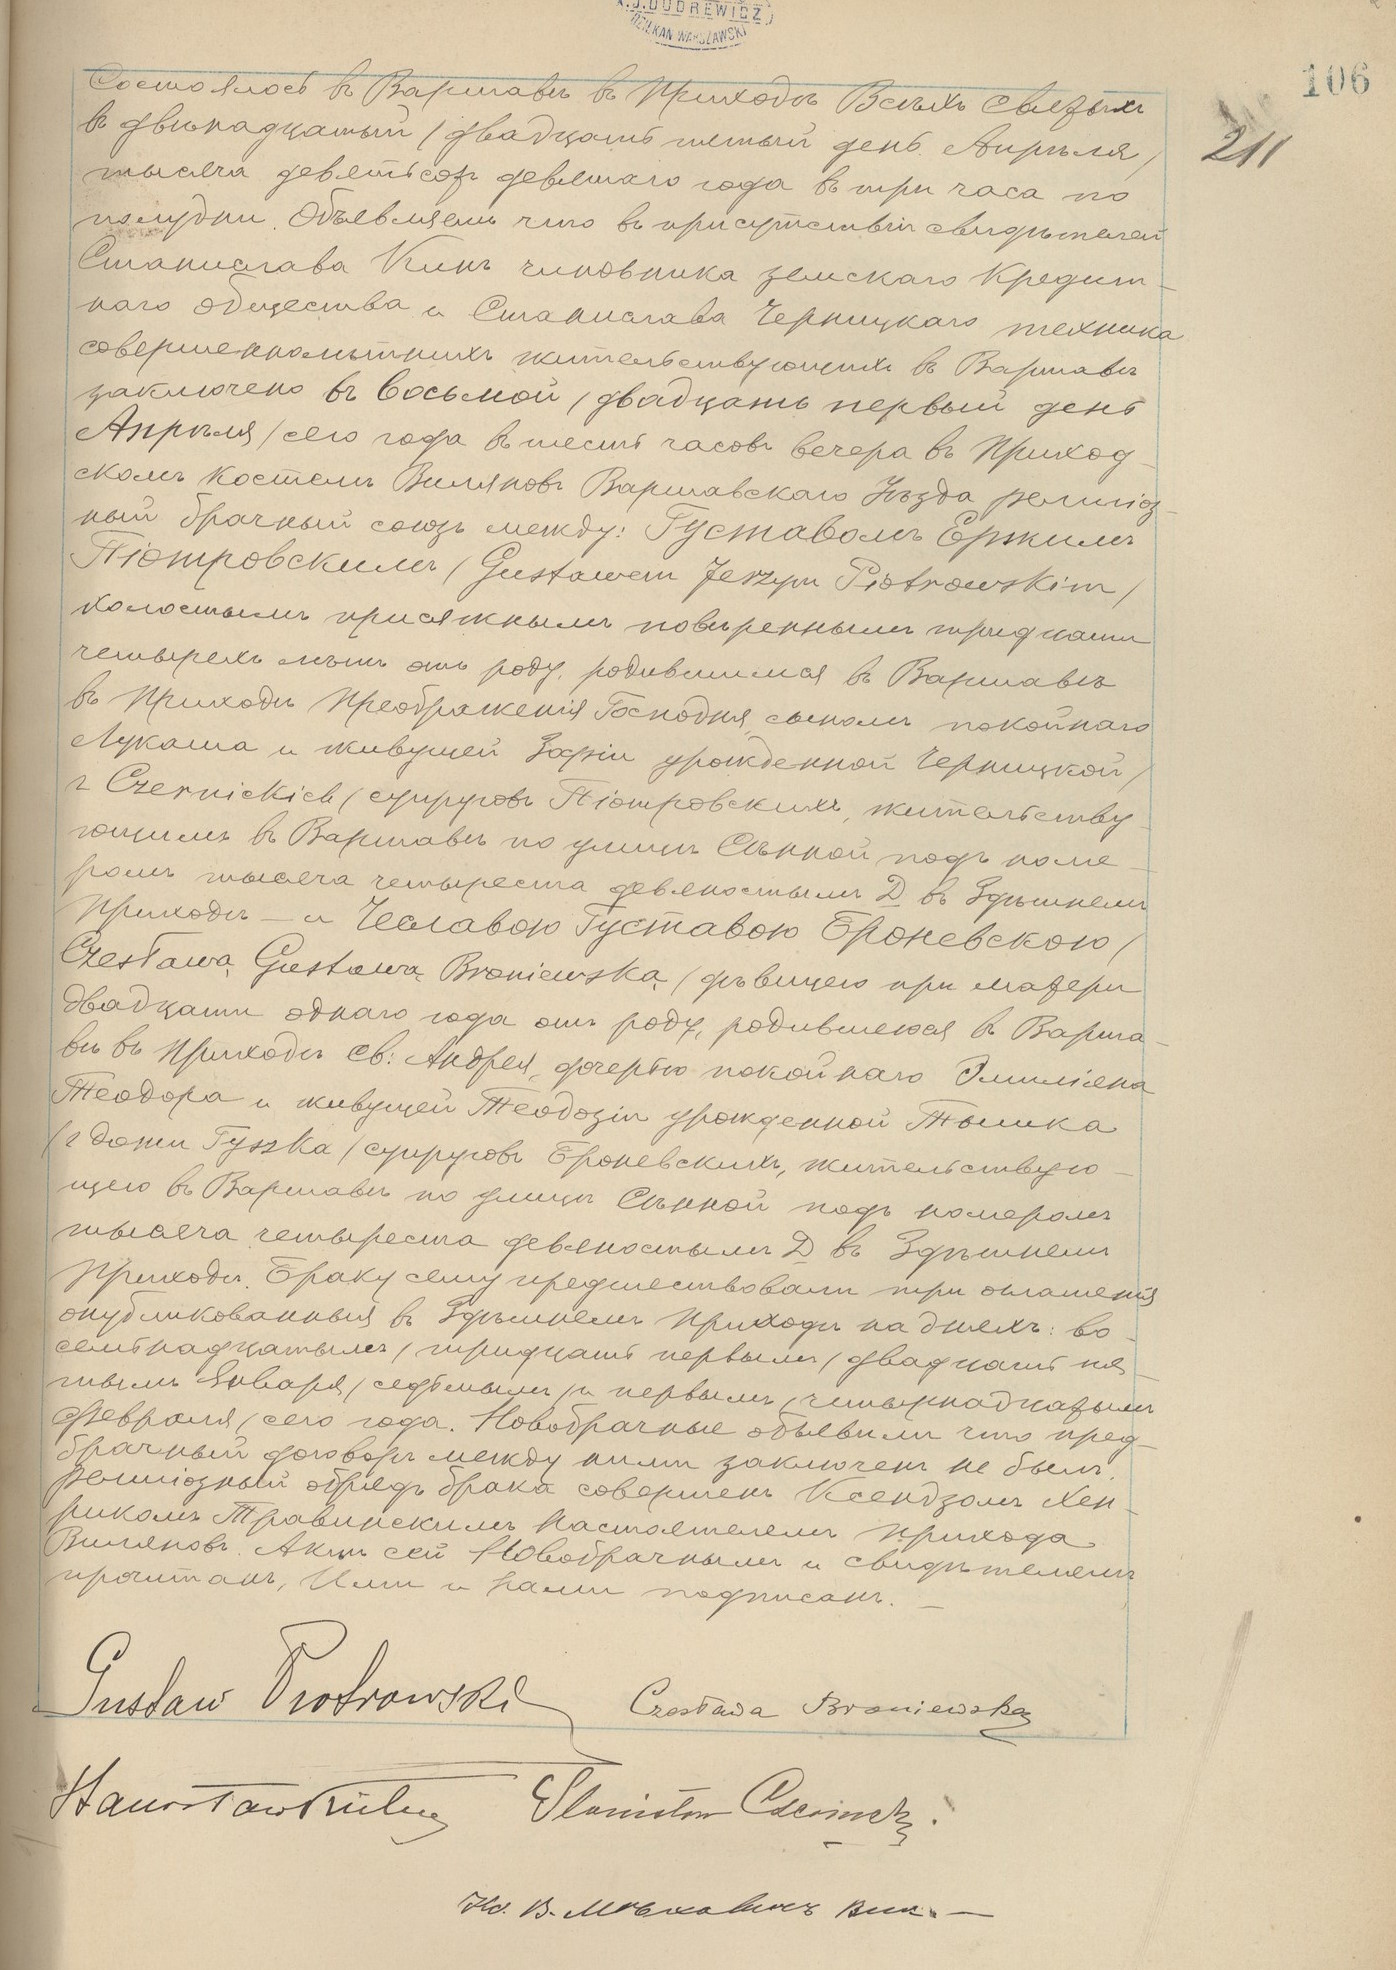 X.J.DUDREWICZ
DZIEKAN WARSZAWSKI
106
211
Состоялось въ Варшавѣ въ Приходѣ Всѣхъ Святыхъ
въ двѣнадцатый / двадцать пятый день Апрѣля /
тысяча девятьсотъ девятаго года въ три часа по
полудни. Объявляемъ что въ присутствіи свидѣтелей
Станислава Кинъ чиновника земскаго Кредит-
наго Общества и Станислава Черницкаго техника
совершеннолѣтнихъ жительствующихъ въ Варшавѣ
заключено въ восьмой / двадцать первый день
Апрѣля / сего года въ шесть часовъ вечера въ Приход-
скомъ костелѣ Виляновъ Варшавскаго Уѣзда религіоз-
ный брачный союзъ между: Густавомъ Ержимъ
Піотровскимъ / Gustawem Jerzym Piotrowskim /
холостымъ присяжнымъ повѣреннымъ тридцати
четырехъ лѣтъ отъ роду, родившимся въ Варшавѣ
въ Приходѣ Преображенія Господня, сыномъ покойнаго
Лукаша и живущей Зофіи урожденной Черницкой /
z Czernickich / супруговъ Піотровскихъ, жительству-
ющимъ въ Варшавѣ по улицѣ Сѣнной подъ номе-
ромъ тысяча четыреста девяностымъ D въ Здѣшнемъ
Приходѣ — и Чеславою Густавою Броневскою /
Czesławą Gustawą Broniewską / дѣвицею при матери
двадцати одного года отъ роду, родившеюся въ Варша-
вѣ въ Приходѣ Св: Андрея, дочерью покойнаго Эмиліяна
Теодора и живущей Теодозіи урожденной Тышка
/ z domu Tyszka / супруговъ Броневскихъ, жительствую-
щею въ Варшавѣ по улицѣ Сѣнной подъ номеромъ
тысяча четыреста девяностымъ D въ Здѣшнемъ
Приходѣ. Браку сему предшествовали три оглашенія
опубликованныя въ Здѣшнемъ Приходѣ на дняхъ: во-
семнадцатымъ / тридцать первымъ / двадцать пя-
тымъ Января / седьмымъ / и первымъ / четырнадцатымъ
Февраля / сего года. Новобрачные объявили что пред-
брачный договоръ между ними заключенъ не былъ.
Религіозный обрядъ брака совершенъ Ксендзомъ Хен-
рикомъ Травинскимъ Настоятелемъ Прихода
Виляновъ. Актъ сей Новобрачнымъ и свидѣтелямъ
прочитанъ, Ими и Нами подписанъ. —
Gustaw Piotrowski Czesława Broniewska
Stanisław Stanisław Czernicki.
Кс. В.